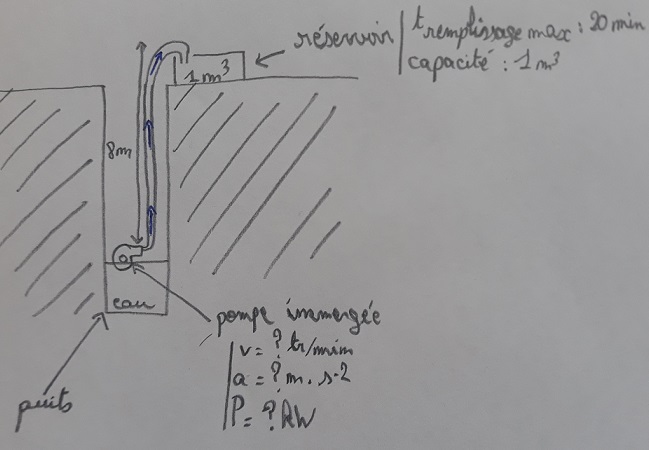 réservoir
t remplissage max : 20 min
capacité : 1 m³
1 m³
8m
eau
pompe immergée
v = ? tr/min
a = ? m . s-2
P = ? kW
puits